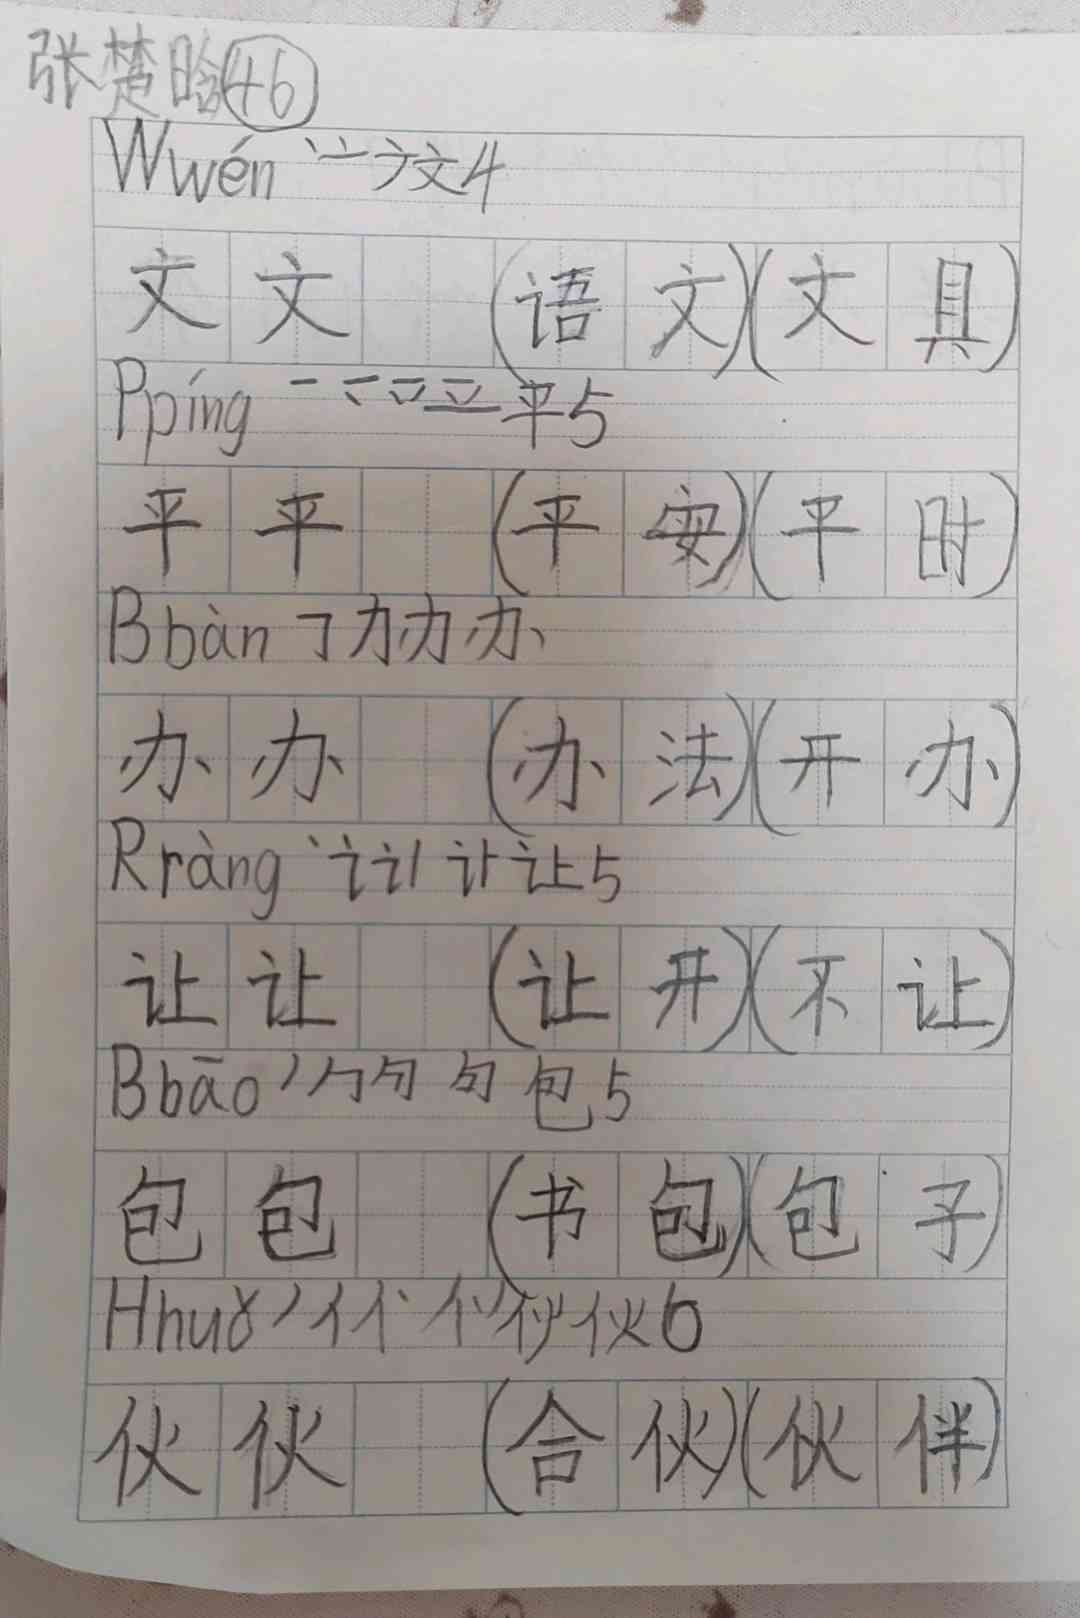 张楚晗 46
Wwén 丶亠ナ文4
文 文 (语 文)(文 具)
Ppíng 一 平5
平 平 (平 安)(平 时)
Bbàn ㇆力办
办 办 (办 法)(开 办)
Rràng 丶讠让5
让 让 (让 开)(不 让)
Bbāo 丿勹勺句包5
包 包 (书 包)(包 子)
Hhuǒ 丿亻伙6
伙 伙 (合 伙)(伙 伴)